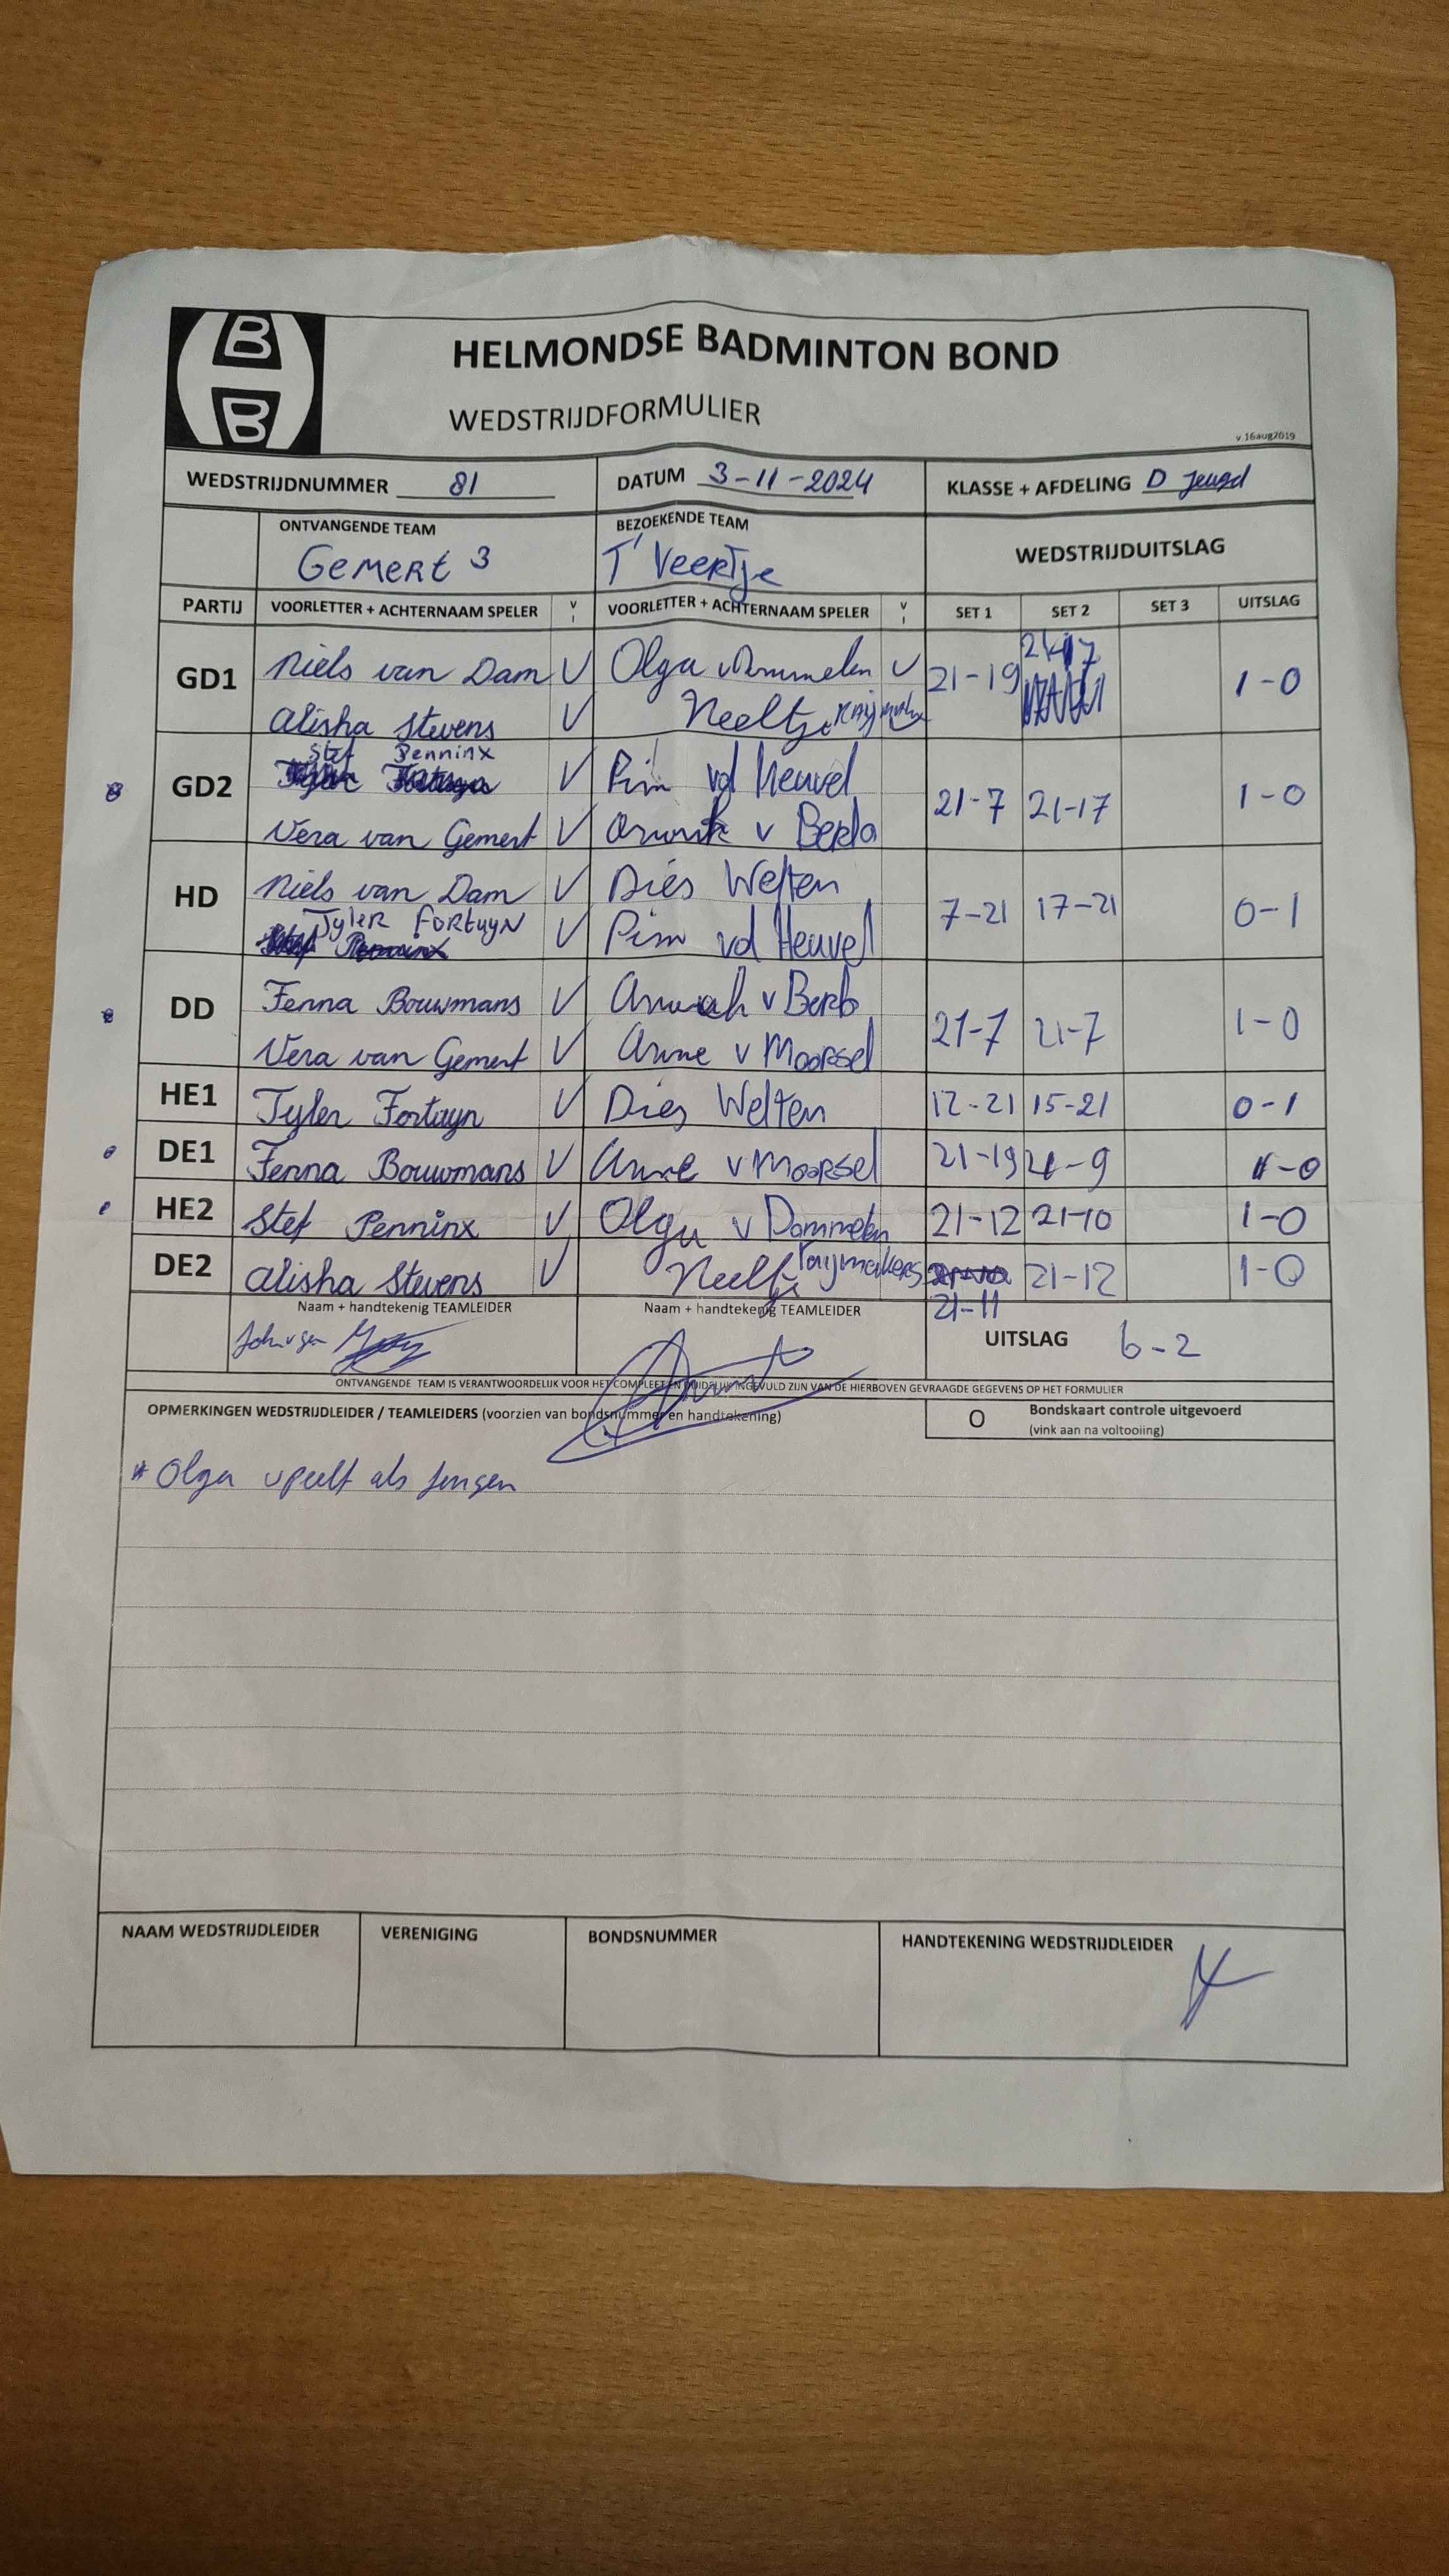 B
B
HELMONDSE BADMINTON BOND
WEDSTRIJDFORMULIER
v.16aug2019
WEDSTRIJDNUMMER 81 DATUM 3-11-2024 KLASSE + AFDELING D Jeugd
ONTVANGENDE TEAM BEZOEKENDE TEAM WEDSTRIJDUITSLAG
Gemert 3 T' Veertje
PARTIJ VOORLETTER + ACHTERNAAM SPELER V VOORLETTER + ACHTERNAAM SPELER V SET 1 SET 2 SET 3 UITSLAG
GD1 Niels van Dam V Olga V 21-19 1-0
Alisha Stevens V Neeltje
Stef Penninx
GD2 V Pim vd Heuvel 21-7 21-17 1-0
Vera van Gemert V v
HD Niels van Dam V Dies Welten 7-21 17-21 0-1
Tyler Fortuyn V Pim vd Heuvel
DD Fenna Bouwmans V v 21-7 21-7 1-0
Vera van Gemert V Anne v Moorsel
HE1 Tyler Fortuyn V Dies Welten 12-21 15-21 0-1
DE1 Fenna Bouwmans V Anne v Moorsel 21-19 21-9 1-0
HE2 Stef Penninx V Olga v Dammelen 21-12 21-10 1-0
DE2 Alisha Stevens V Neeltje raymakers 21-12 1-0
21-11
Naam + handtekenig TEAMLEIDER Naam + handtekenig TEAMLEIDER
UITSLAG 6-2
ONTVANGENDE TEAM IS VERANTWOORDELIJK VOOR HET COMPLEET EN DUIDELIJK INGEVULD ZIJN VAN DE HIERBOVEN GEVRAAGDE GEGEVENS OP HET FORMULIER
OPMERKINGEN WEDSTRIJDLEIDER / TEAMLEIDERS (voorzien van bondsnummer en handtekening)
O Bondskaart controle uitgevoerd
(vink aan na voltooiing)
* Olga speelt als jongen
NAAM WEDSTRIJDLEIDER VERENIGING BONDSNUMMER HANDTEKENING WEDSTRIJDLEIDER